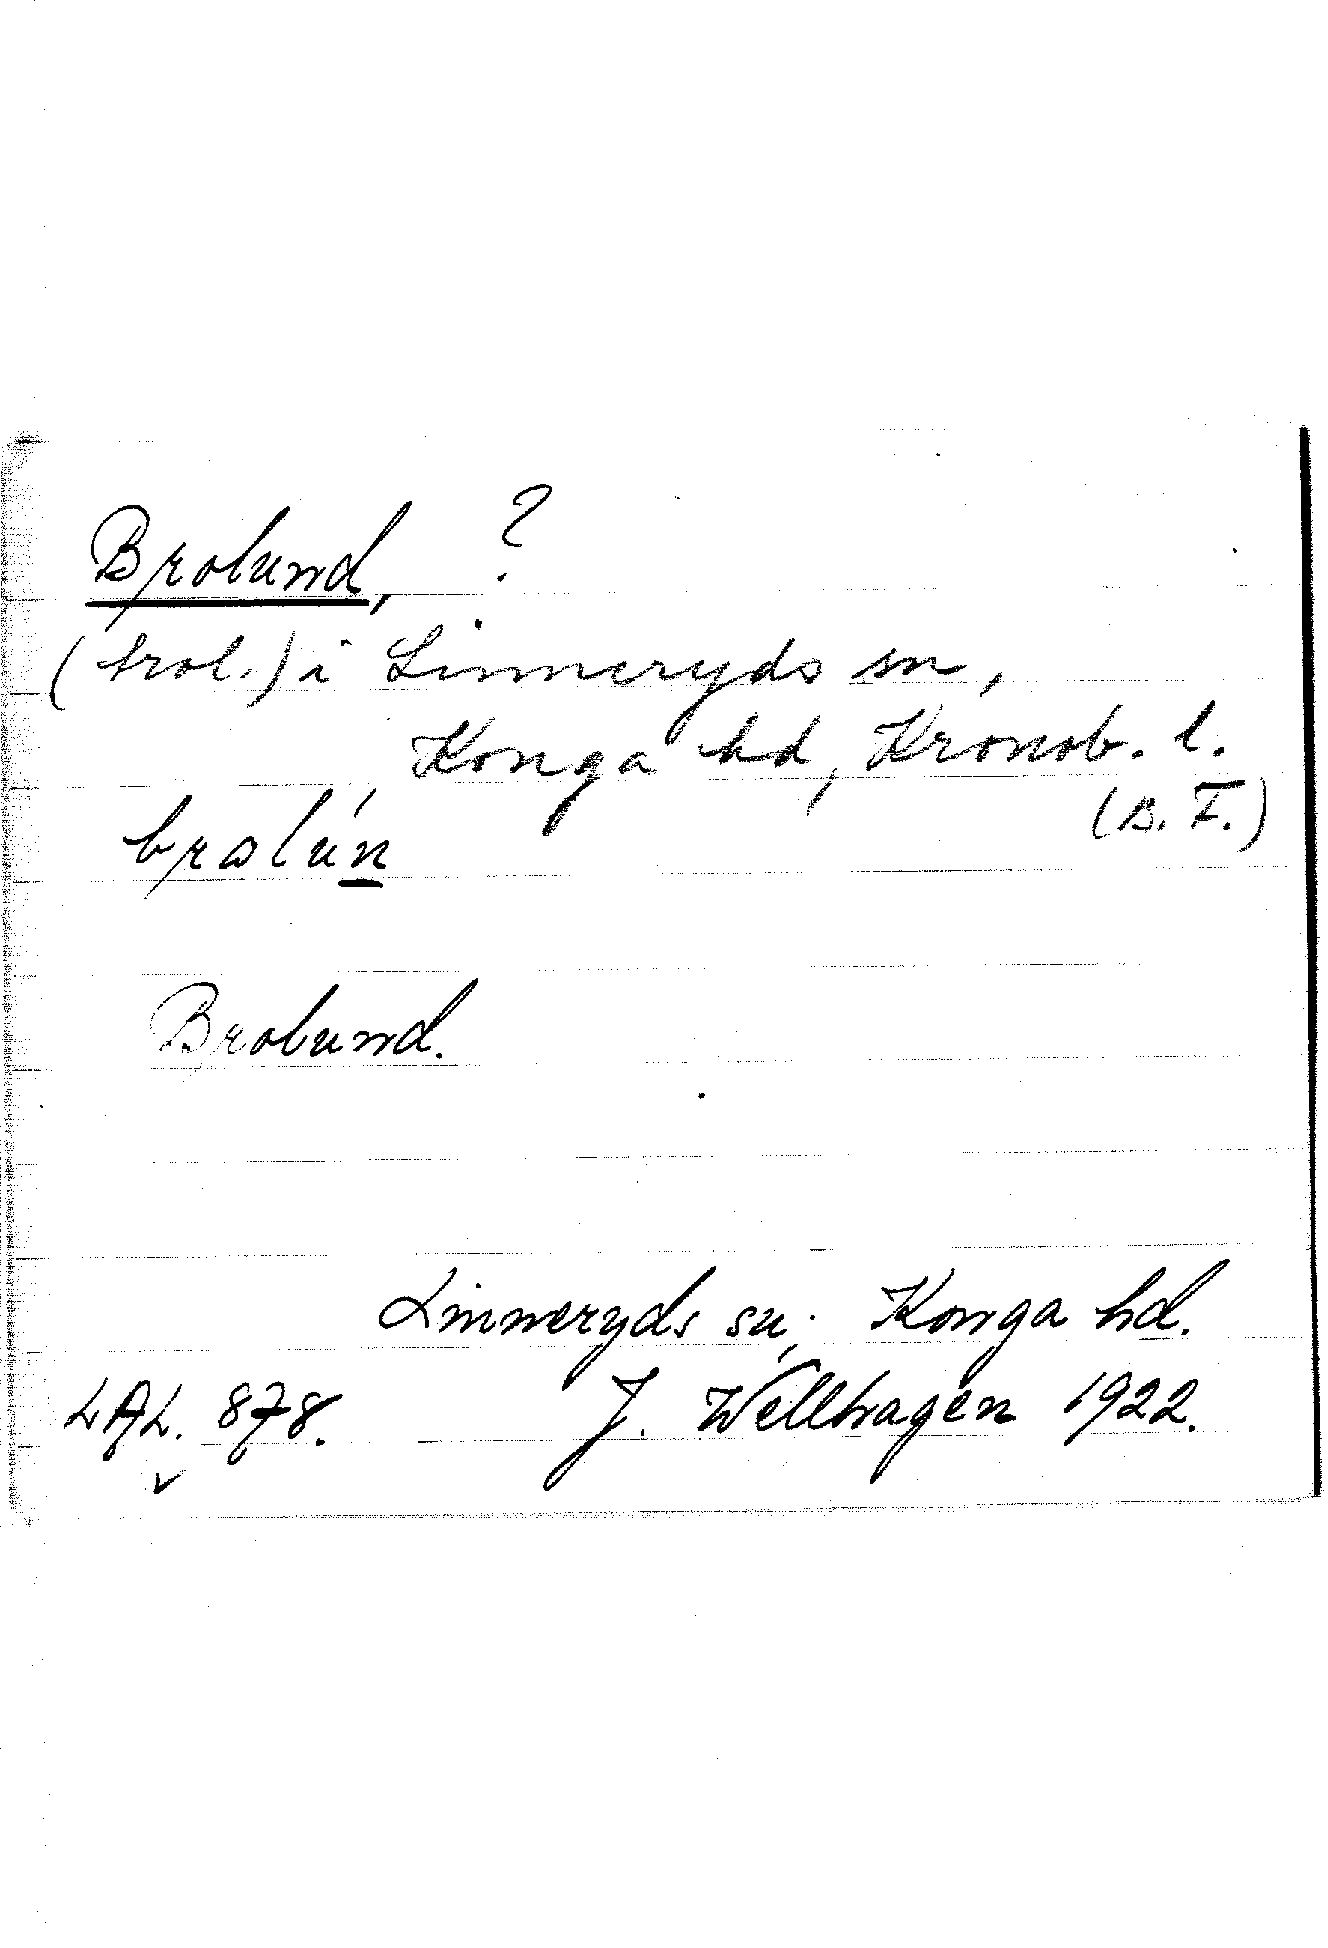 Brolund, ?
(trol.) i Linneryds sn,
Konga hd, Kronob. l.
(B. F.)
brolún
Brolund.
Linneryds sn; Konga hd.
LAL. 878. J. Wellhagen 1922.